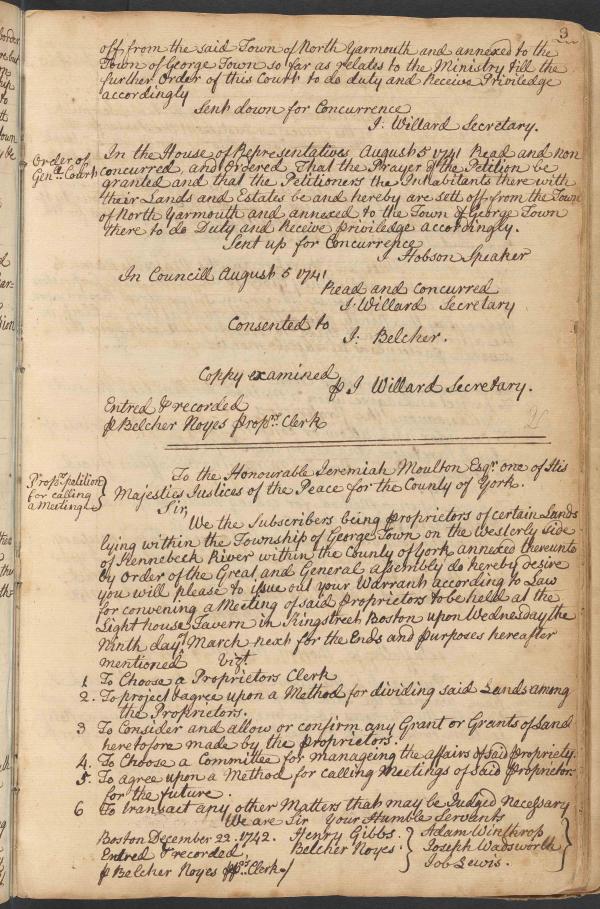 3
off from the said Town of North Yarmouth and annexed to the
Town of George Town so far as relates to the Ministry till the
further Order of this Court to do duty and Receive Priviledge
accordingly
Sent down for Concurrence
J: Willard Secretary.
Order of
Gen.ll Court
In the House of Representatives August 5 1741 Read and non
concurred, and Ordered That the Prayer of the Petition be
granted and that the Petitioners the Inhabitants there with
their Lands and Estates be and hereby are sett off from the Town
of North Yarmouth and annexed to the Town of George Town
there to do Duty and Receive priviledge accordingly.
Sent up for Concurrence
J Hobson Speaker
In Councill August 5 1741
Read and Concurred
J. Willard Secretary
Consented to
J: Belcher.
Coppy examined
⅌ J Willard Secretary.
Entred & recorded
⅌ Belcher Noyes Prop.rs Clerk
Prop.rs petition
for calling
a Meeting
To the Honourable Jeremiah Moulton Esq.r one of His
Majesties Justices of the Peace for the County of York.
Sir,
We the Subscribers being Proprietors of certain Lands
lying within the Township of George Town on the Westerly Side
of Kennebeck River within the County of York annexed thereunto
by Order of the Great and General Assembly do hereby desire
you will please to issue out your Warrant according to Law
for convening a Meeting of said Proprietors to be held at the
Light house Tavern in Kingstreet Boston upon Wednesday the
Ninth day of March next for the Ends and Purposes hereafter
mentioned Viz.t
1 To Choose a Proprietors Clerk
2. To project & agree upon a Method for dividing said Lands among
the Proprietors.
3 To Consider and allow or confirm any Grant or Grants of Land
heretofore made by the Proprietors.
4. To Choose a Committee for manageing the affairs of said Propriety.
5. To agree upon a Method for calling Meetings of said Proprietors
for the future.
6 To transact any other Matters that may be Judged Necessary
We are Sir Your Humble Servants
Boston December 22. 1742. Henry Gibbs. Adam Winthrop
Entred & recorded Belcher Noyes. Joseph Wadsworth
⅌ Belcher Noyes Prop.rs Clerk. Job Lewis.